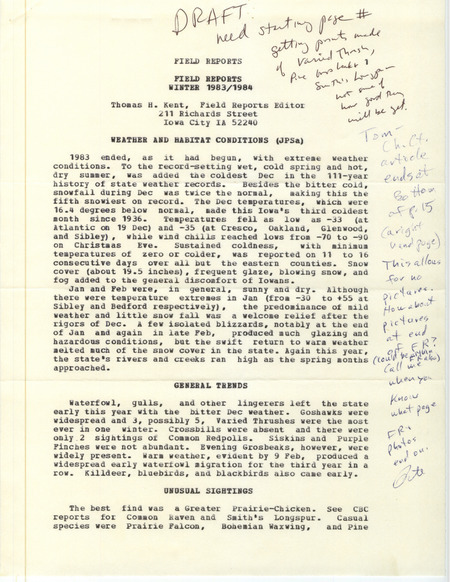 DRAFT.
need starting page #
getting prints made
of Varied Thrush,
Pine Grosbeak &
Smith's Longspur
not sure of
how good they
will be yet.
FIELD REPORTS
FIELD REPORTS
WINTER 1983/1984
Thomas H. Kent, Field Reports Editor
211 Richards Street
Iowa City IA 52240
WEATHER AND HABITAT CONDITIONS (JPSa)
1983 ended, as it had begun, with extreme weather
conditions. To the record-setting wet, cold spring and hot,
dry summer, was added the coldest Dec in the 111-year
history of state weather records. Besides the bitter cold,
snowfall during Dec was twice the normal, making this the
fifth snowiest on record. The Dec temperatures, which were
16.4 degrees below normal, made this Iowa's third coldest
month since 1936. Temperatures fell as low as -33 (at
Atlantic on 19 Dec) and -35 (at Cresco, Oakland, Glenwood,
and Sibley), while wind chills reached lows from -70 to -90
on Christmas Eve. Sustained coldness, with minimum
temperatures of zero or colder, was reported on 11 to 16
consecutive days over all but the eastern counties. Snow
cover (about 19.5 inches), frequent glaze, blowing snow, and
fog added to the general discomfort of Iowans.
Jan and Feb were, in general, sunny and dry. Although
there were temperature extremes in Jan (from -30 to +55 at
Sibley and Bedford respectively), the predominance of mild
weather and little snow fall was a welcome relief after the
rigors of Dec. A few isolated blizzards, notably at the end
of Jan and again in late Feb, produced much glazing and
hazardous conditions, but the swift return to warm weather
melted much of the snow cover in the state. Again this year,
the state's rivers and creeks ran high as the spring months
approached.
GENERAL TRENDS
Waterfowl, gulls, and other lingerers left the state
early this year with the bitter Dec weather. Goshawks were
widespread and 3, possibly 5, Varied Thrushes were the most
ever in one winter. Crossbills were absent and there were
only 2 sightings of Common Redpolls. Siskins and Purple
Finches were not abundant. Evening Grosbeaks, however, were
widely present. Warm weather, evident by 9 Feb, produced a
widespread early waterfowl migration for the third year in a
row. Killdeer, bluebirds, and blackbirds also came early.
UNUSUAL SIGHTINGS
The best find was a Greater Prairie-Chicken. See CBC
reports for Common Raven and Smith's Longspur. Casual
species were Prairie Falcon, Bohemian Waxwing, and Pine
Tom-
Ch. Ct.
article
ends at
Bottom
of p. 15
(a right
view page)
This allows
for no
pictures.
How about
pictures
at end
of F.R.?
Call me
when you
know
what page
F.R.
photos
end on.
Pete